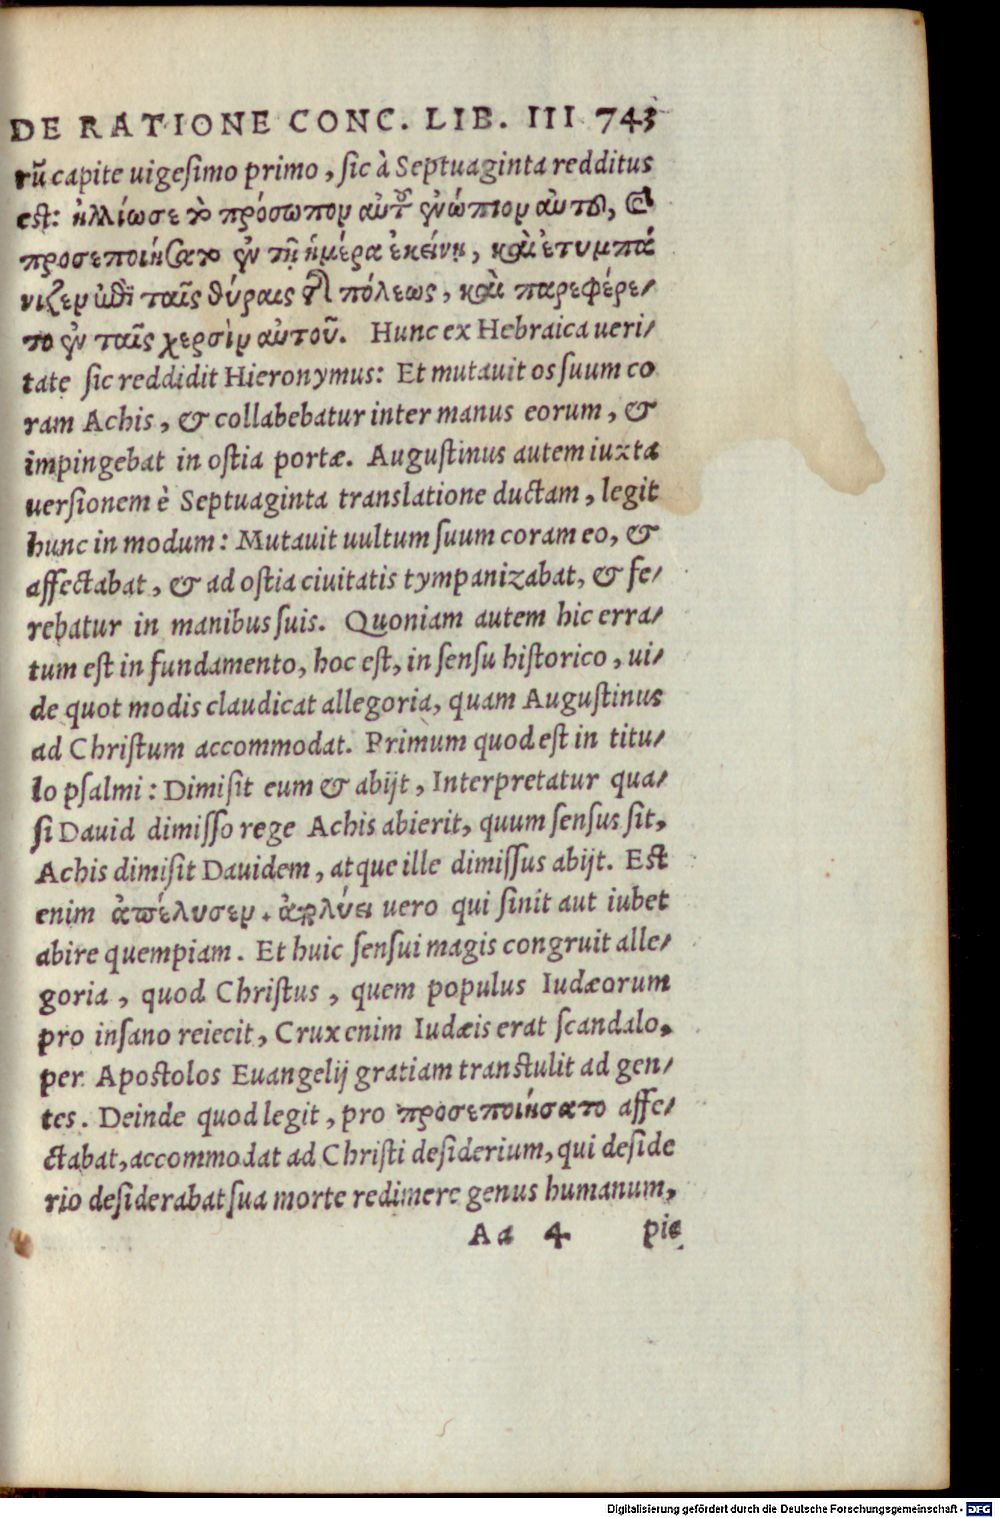 DE RATIONE CONC. LIB. III 743
rũ capite uigesimo primo, sic à Septuaginta redditus
est: ἠλλίωσε τὸ πρόσωπον αὐτοῦ ἐνώπιον αὐτοῦ, καὶ
προσεποιήσατο ἐν τῇ ἡμέρᾳ ἐκείνῃ, καὶ ἐτυμπά
νιζεν ἐπὶ ταῖς θύραις τῆς πόλεως, καὶ παρεφέρε/
το ἐν ταῖς χερσὶν αὐτοῦ. Hunc ex Hebraica ueri/
tate sic reddidit Hieronymus: Et mutauit os suum co
ram Achis, & collabebatur inter manus eorum, &
impingebat in ostia portæ. Augustinus autem iuxta
uersionem è Septuaginta translatione ductam, legit
hunc in modum: Mutauit uultum suum coram eo, &
affectabat, & ad ostia ciuitatis tympanizabat, & fe/
rebatur in manibus suis. Quoniam autem hic erra/
tum est in fundamento, hoc est, in sensu historico, ui/
de quot modis claudicat allegoria, quam Augustinus
ad Christum accommodat. Primum quod est in titu/
lo psalmi: Dimisit eum & abijt, Interpretatur qua/
si Dauid dimisso rege Achis abierit, quum sensus sit,
Achis dimisit Dauidem, atque ille dimissus abijt. Est
enim ἀπέλυσεν. ἀπολύει uero qui sinit aut iubet
abire quempiam. Et huic sensui magis congruit alle/
goria, quod Christus, quem populus Iudæorum
pro insano reiecit, Crux enim Iudæis erat scandalo,
per Apostolos Euangelij gratiam transtulit ad gen/
tes. Deinde quod legit, pro προσεποιήσατο affe/
ctabat, accommodat ad Christi desiderium, qui deside
rio desiderabat sua morte redimere genus humanum,
Aa 4 pie
Digitalisierung gefördert durch die Deutsche Forschungsgemeinschaft - DFG